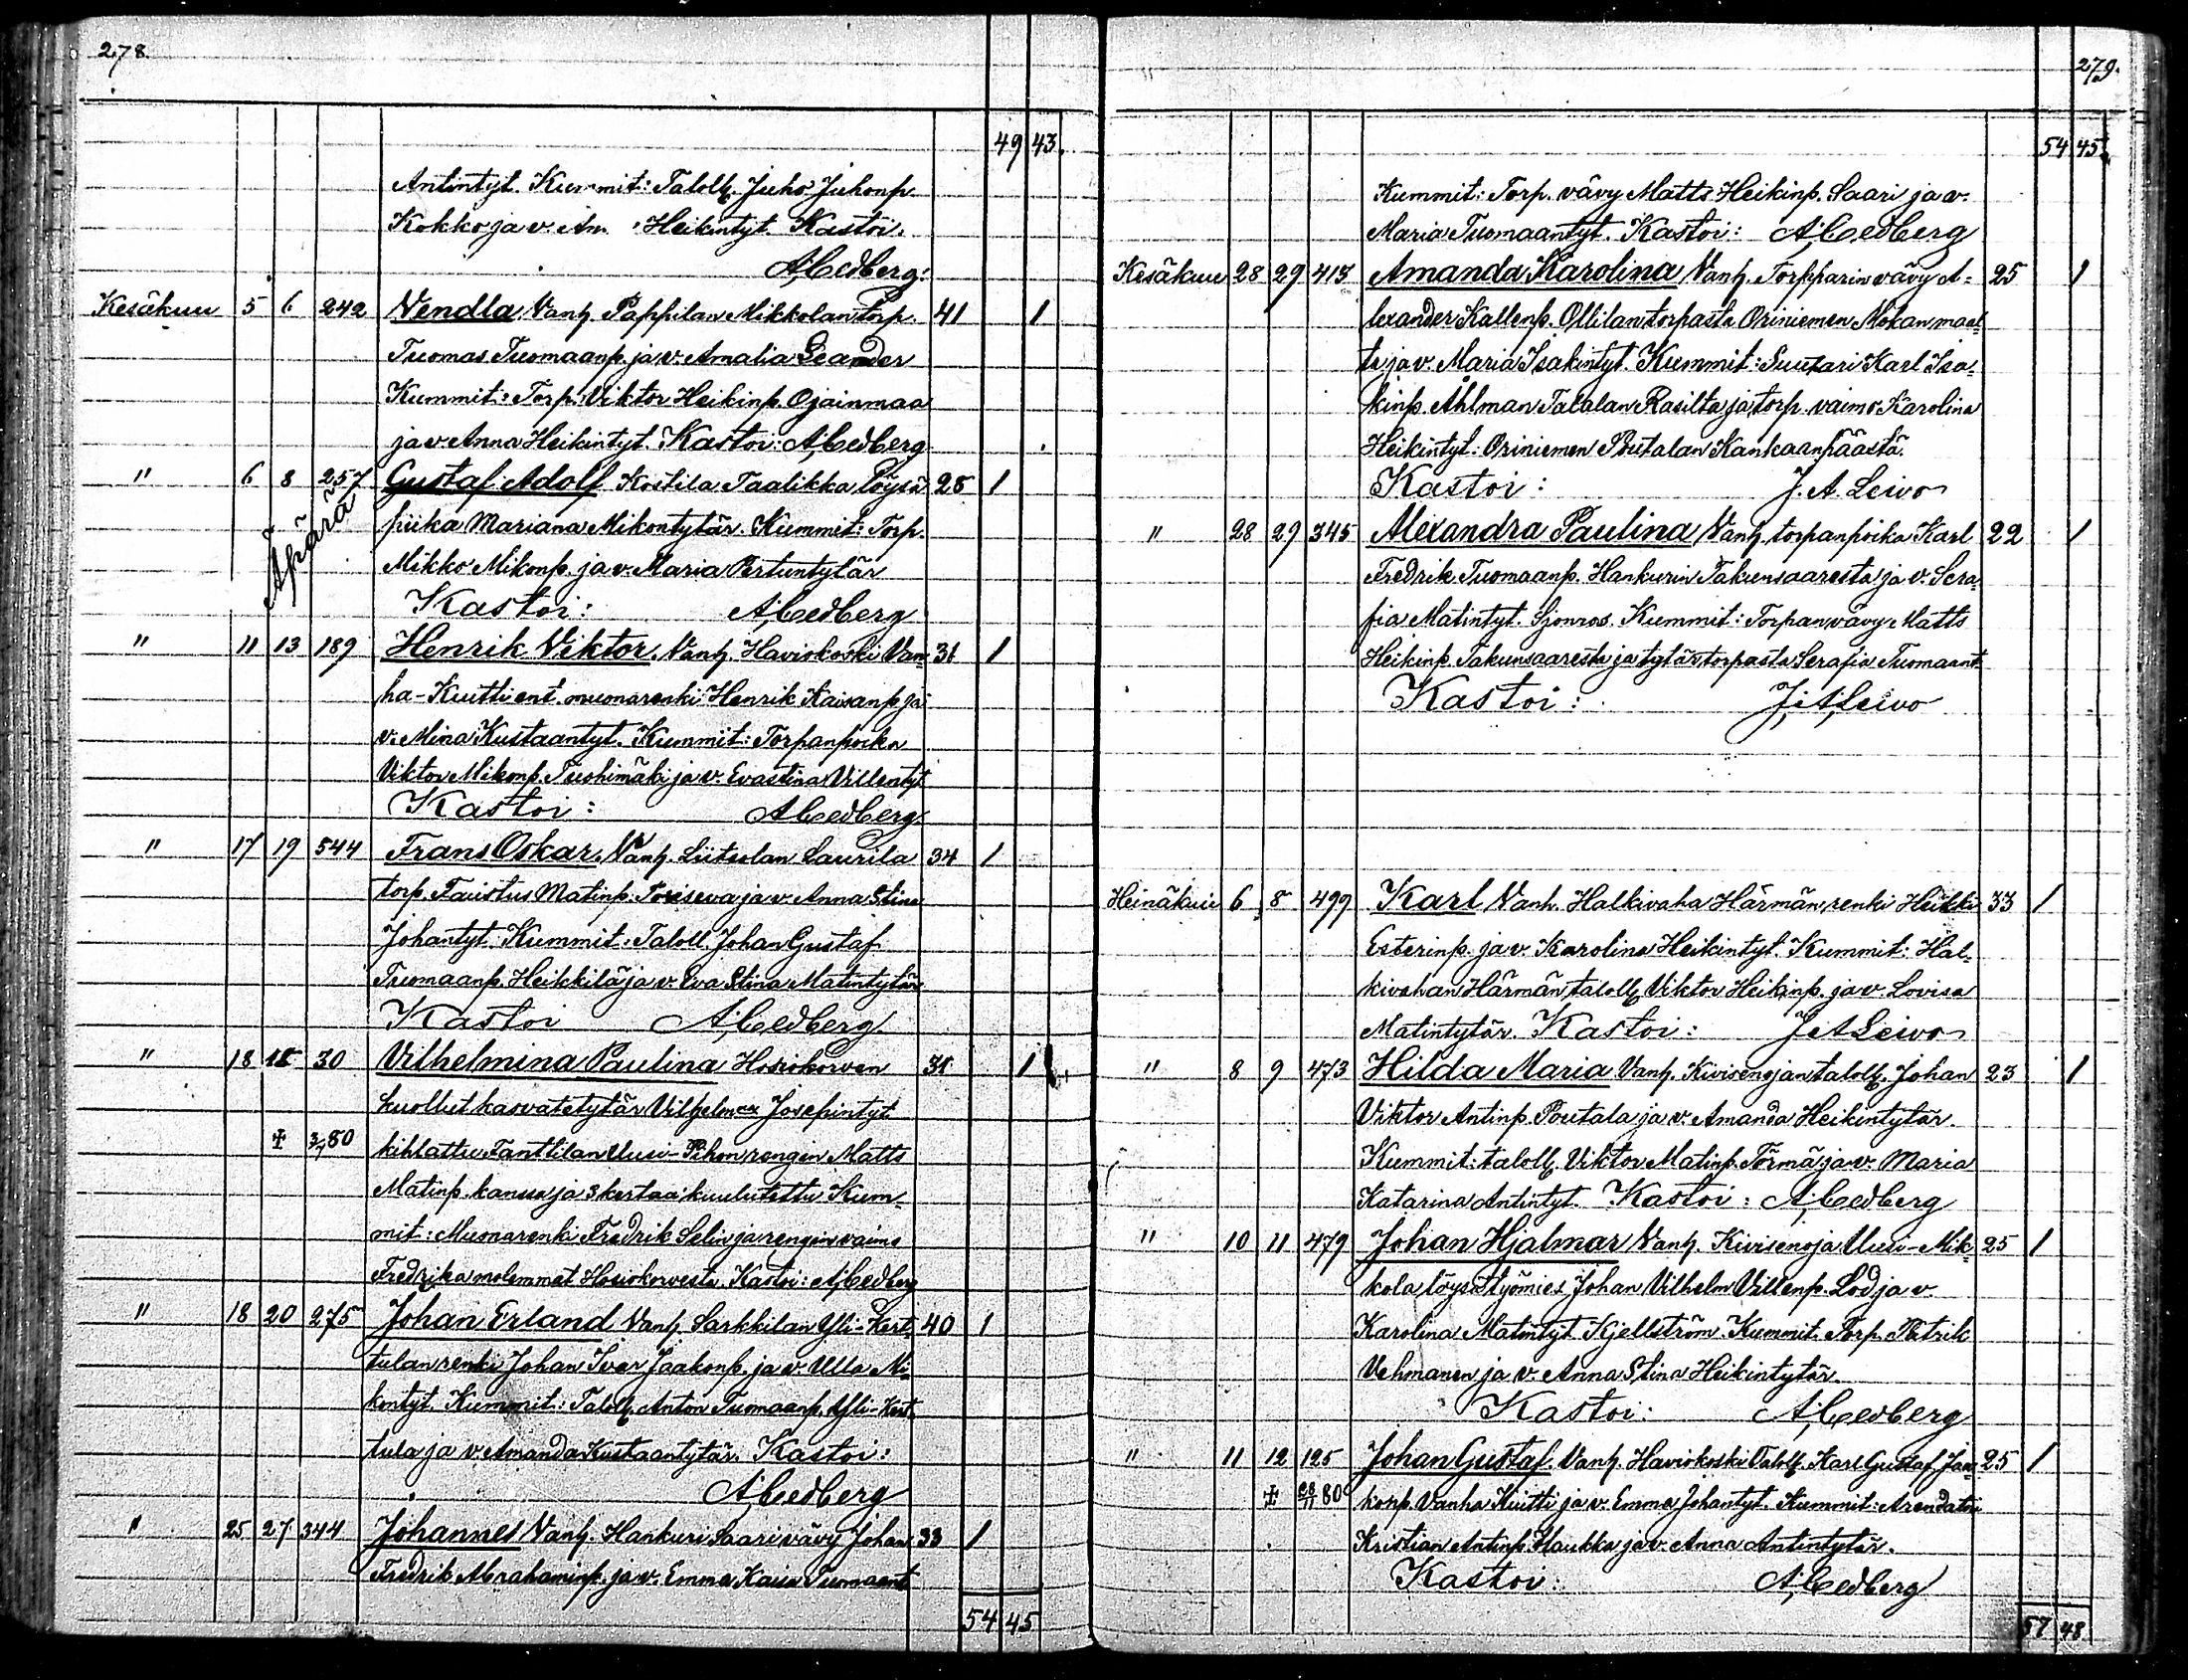 278.
49 43.
Antintyt. Kummit: Taloll. Juho Juhonp.
Kokko ja v. Heikintyt. Kastoi:
A. Cedberg.
Kesäkuu 5 6 242 Vendla Vanh. Pappilan Mikkolan torp. 41 1
Tuomas Tuomaanp. ja v. Amalia Leander
Kummit: Torp. Viktor Heikinp. Ojainmaa
ja v. Anna Heikintyt. Kastoi: A. Cedberg
" 6 8 257 Gustaf Adolf Kostila Taalikka löysä 28 1
Äpärä
piika Mariana Mikontytär. Kummit: Torp.
Mikko Mikonp. ja v. Maria Pertuntytär
Kastoi: A. Cedberg
" 11 13 189 Henrik Viktor. Vanh. Haviokoski Van- 31 1
ha-Kuitti ent. muonarenki Henrik Kaisanp. ja
v. Mina Kustaantyt. Kummit: Torpanpoika
Viktor Mikonp. Tuohimäki ja v. Evastina Villentyt
Kastoi: A. Cedberg.
" 17 19 544 Frans Oskar. Vanh. Liitsulan Laurila 34 1
torp. Faustus Matinp. ja v. Anna Stina
Johantyt. Kummit: Taloll. Johan Gustaf
Tuomaanp. Heikkilä ja v. Eva Stina Matintytär
Kastoi A. Cedberg
" 18 18 30 Vilhelmina Paulina Hosiokorven 31 1
kuollut kasvatetytär Vilhelmina Josepintyt
+ 3/7 80 kihlattu Tanttilan Uusi-Pihon rengin Matts
Matinp. kanssa ja 3 kertaa kuulutettu Kum-
mit: Muonarenki Fredrik Selin ja rengin vaimo
Fredrika molemmat Hosiokorvesta. Kastoi: A. Cedberg
" 18 20 275 Johan Erland Vanh. Sarkkilan Yli-Kert- 40 1
tulan renki Johan Ivar Jaakonp. ja v. Ulla Mi-
kontyt. Kummit: Taloll. Anton Tuomaanp. Yli-Kert-
tula ja v. Amanda Kustaantytär. Kastoi:
A. Cedberg
" 25 27 344 Johannes Vanh. Hankuri Saari vävy Johan 33 1
Fredrik Abrahaminp. ja v. Emma Kaisa Tuomaant
54 45
279.
54 45
Kummit: Torp. vävy Matts Heikinp. Saari ja v.
Maria Tuomaantyt. Kastoi: A. Cedberg
Kesäkuu 28 29 413 Amanda Karolina Vanh. Torpparin vävy A- 25 1
lexander Kallenp. Ollilan torpasta Oriniemen Mokan maal-
ta ja v. Maria Isakintyt. Kummit: Suutari Karl Isa-
kinp. Åhlman Talalan Rasilta ja torp. vaimo Karolina
Heikintyt: Oriniemen Poutalan Kankaanpäästä.
Kastoi: J. A. Leivo
" 28 29 345 Alexandra Paulina Vanh. torpanpoika Karl 22 1
Fredrik Tuomaanp. Hankurin Takunsaaresta ja v. Sera-
fia Matintyt. Sjonros. Kummit: Torpanvävy Matts
Heikinp. Takunsaaresta ja tytär torpasta Serafia Tuomaant.
Kastoi: J. A. Leivo
Heinäkuu 6 8 499 Karl Vanh. Halkivaha Härmän renki Heikki 33 1
Esterinp. ja v. Karolina Heikintyt. Kummit: Hal-
kivahan Härmän taloll. Viktor Heikinp. ja v. Lovisa
Matintytär. Kastoi: J. A. Leivo
" 8 9 473 Hilda Maria Vanh. Kivisenojan taloll. Johan 23 1
Viktor Antinp. Poutala ja v. Amanda Heikintytär.
Kummit: taloll. Viktor Matinp. Törmä ja v. Maria
Katarina Antintyt. Kastoi: A. Cedberg
" 10 11 479 Johan Hjalmar Vanh. Kivisenoja Uusi-Mik- 25 1
kola löysä työmies Johan Vilhelm Villenp. Lod ja v.
Karolina Matintyt Kjellström. Kummit. Torp. Patrik
Vehmanen ja v. Anna Stina Heikintytär.
Kastoi: A. Cedberg
" 11 12 125 Johan Gustaf. Vanh. Haviokoski Taloll. Karl Gustaf Jaa- 25 1
+ 28/11 80 konp. Vanha Kuitti ja v. Emma Johantyt. Kummit: Arendatori
Kristian Antinp. Haukka ja v. Anna Antintytär.
Kastoi: A. Cedberg
57 48